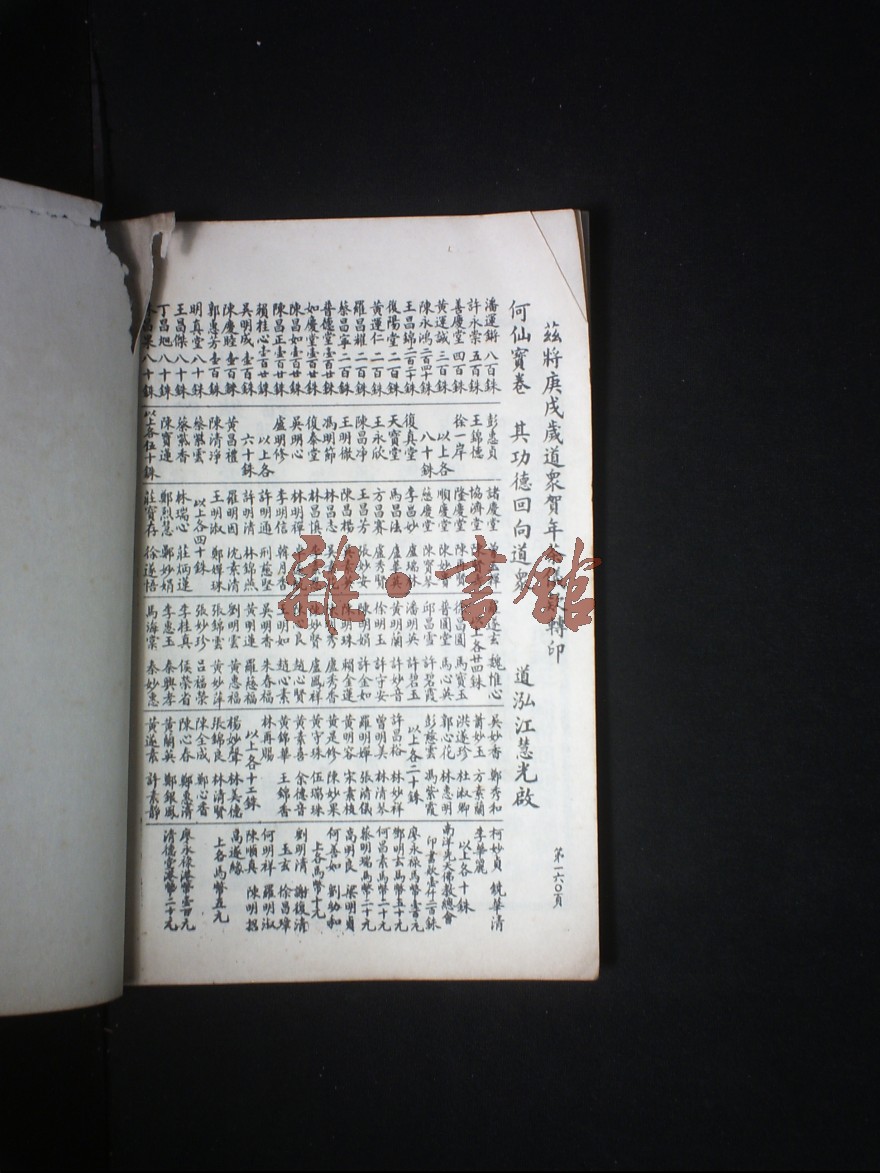 茲將庚戌歲道眾賀年茶
轉印
何仙寶卷 其功德回向道眾 道泓江慧光啟
潘運鏘八百銖
許永崇五百銖
善慶堂四百銖
黃運誠三百銖
陳永鴻二百四十銖
王昌錦二百二十銖
復陽堂二百銖
黃運仁二百銖
羅昌耀二百銖
蔡昌寧二百銖
普德堂壹百廿銖
如慶堂壹百廿銖
陳昌如壹百廿銖
陳昌正壹百廿銖
賴桂心壹百廿銖
吳明成壹百銖
陳慶睦壹百銖
郭惠芳壹百銖
明真堂八十銖
王昌傑八十銖
丁昌旭八十銖
八十銖
彭惠貞
王錦德
徐一岸
以上各
八十銖
復真堂
天寶堂
王永欣
陳昌淨
王明徹
馮明節
復泰堂
吳明心
盧明修
以上各
六十銖
黃昌禮
陳清淨
蔡紫雲
蔡紫香
陳寶蓮
以上各伍十銖
諸慶堂
協濟堂
隆慶堂
順慶堂 陳妙
慈慶堂 陳寶琴
李昌妙 盧瑞林
馬昌法
方昌賽 盧秀賢
王昌芳 張妙安
陳昌楊
林昌志
林昌慎
林明禪
李明信 韓月杏
許明通 刑慈堅
許明清 林錦燕
羅明因 沈素清
王明淑 鄭嬋珠
以上各四十銖
林瑞心 莊炳蓮
鄭烈慧 鄭妙娟
莊寶存 徐遂悟
遂玄 魏惟心
以上各廿四銖
徐昌圓 馬寶玉
普圓堂 馬心英
邱昌雲 許碧霞
潘明英 許碧玉
黃明蘭 許妙音
徐明玉 許守安
陳明娟 許金如
陳明珠 賴金蓮
盧秀香
妙賢 盧鳳祥
良 趙心賢
王明如 趙心素
吳明香 朱春福
黃明進 羅慈福
劉明雲 黃惠福
張錦雲 黃妙萍
張妙珍 呂福榮
李桂真 侯榮省
李惠玉 秦興孝
馬海棠 秦妙惠
吳妙香 鄭秀和
蕭妙玉 方素蘭
洪遂珍 杜淑卿
郭心花 林惠明
彭慈雲 馮紫霞
以上各二十銖
許昌裕 林妙祥
曾明美 林清琴
羅明嬋 張清儀
黃明容 宋素枝
黃是修 陳妙果
黃守珠 伍瑞珠
黃素喜 余德音
黃錦華 王錦香
林再賜
以上各十二銖
楊妙聲 林美德
張錦良 林清賢
陳全成 鄭心香
陳心春 鄭惠清
黃蘭英 鄭銀鳳
黃遂素 許素靜
柯妙貞 饒華清
李華麗
以上各十銖
南洋先天佛教總會
印書款壹仟二百銖
廖永祿馬幣壹百元
鄧明玄馬幣五十元
何昌素馬幣二十元
蔡明瑞馬幣二十元
高明良 梁明貞
何善如 劉勸和
上各馬幣十元
劉明清 謝復清
玉玄 徐昌璋
何明祥 羅明淑
陳順真 陳明招
高遂緣
上各馬幣五元
廖永祿港幣壹百元
清德堂港幣二十元
第一六〇頁
雜·書館